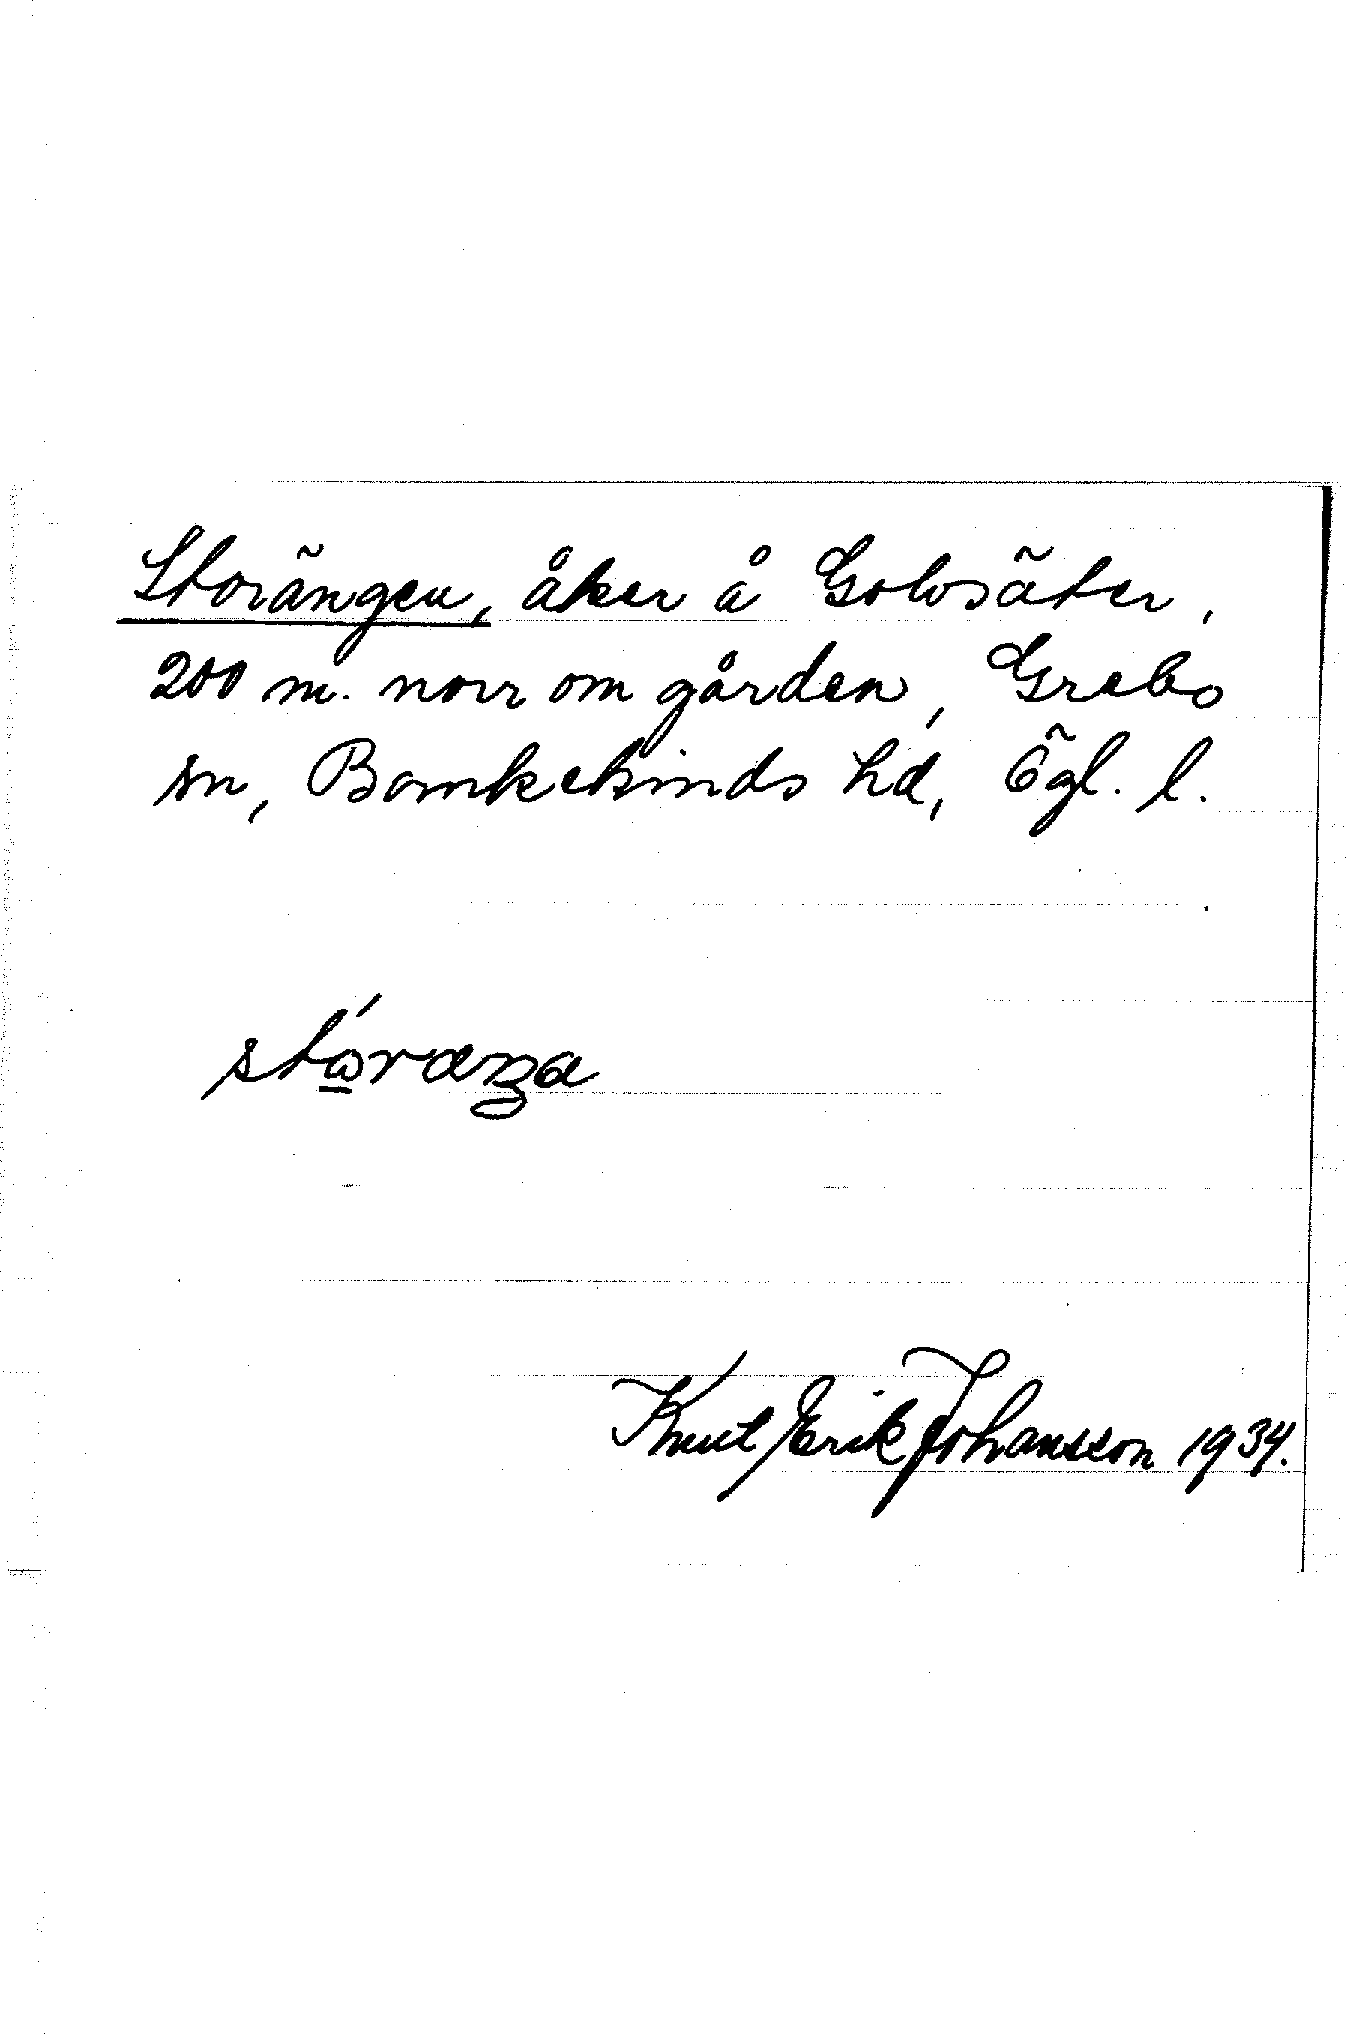 Storängen, åker å Golvsäter,
200 m. norr om gården, Grebo
sn, Bankekinds hd, Ögl. l.
stωŕræŋa
Knut Erik Johansson 1934.